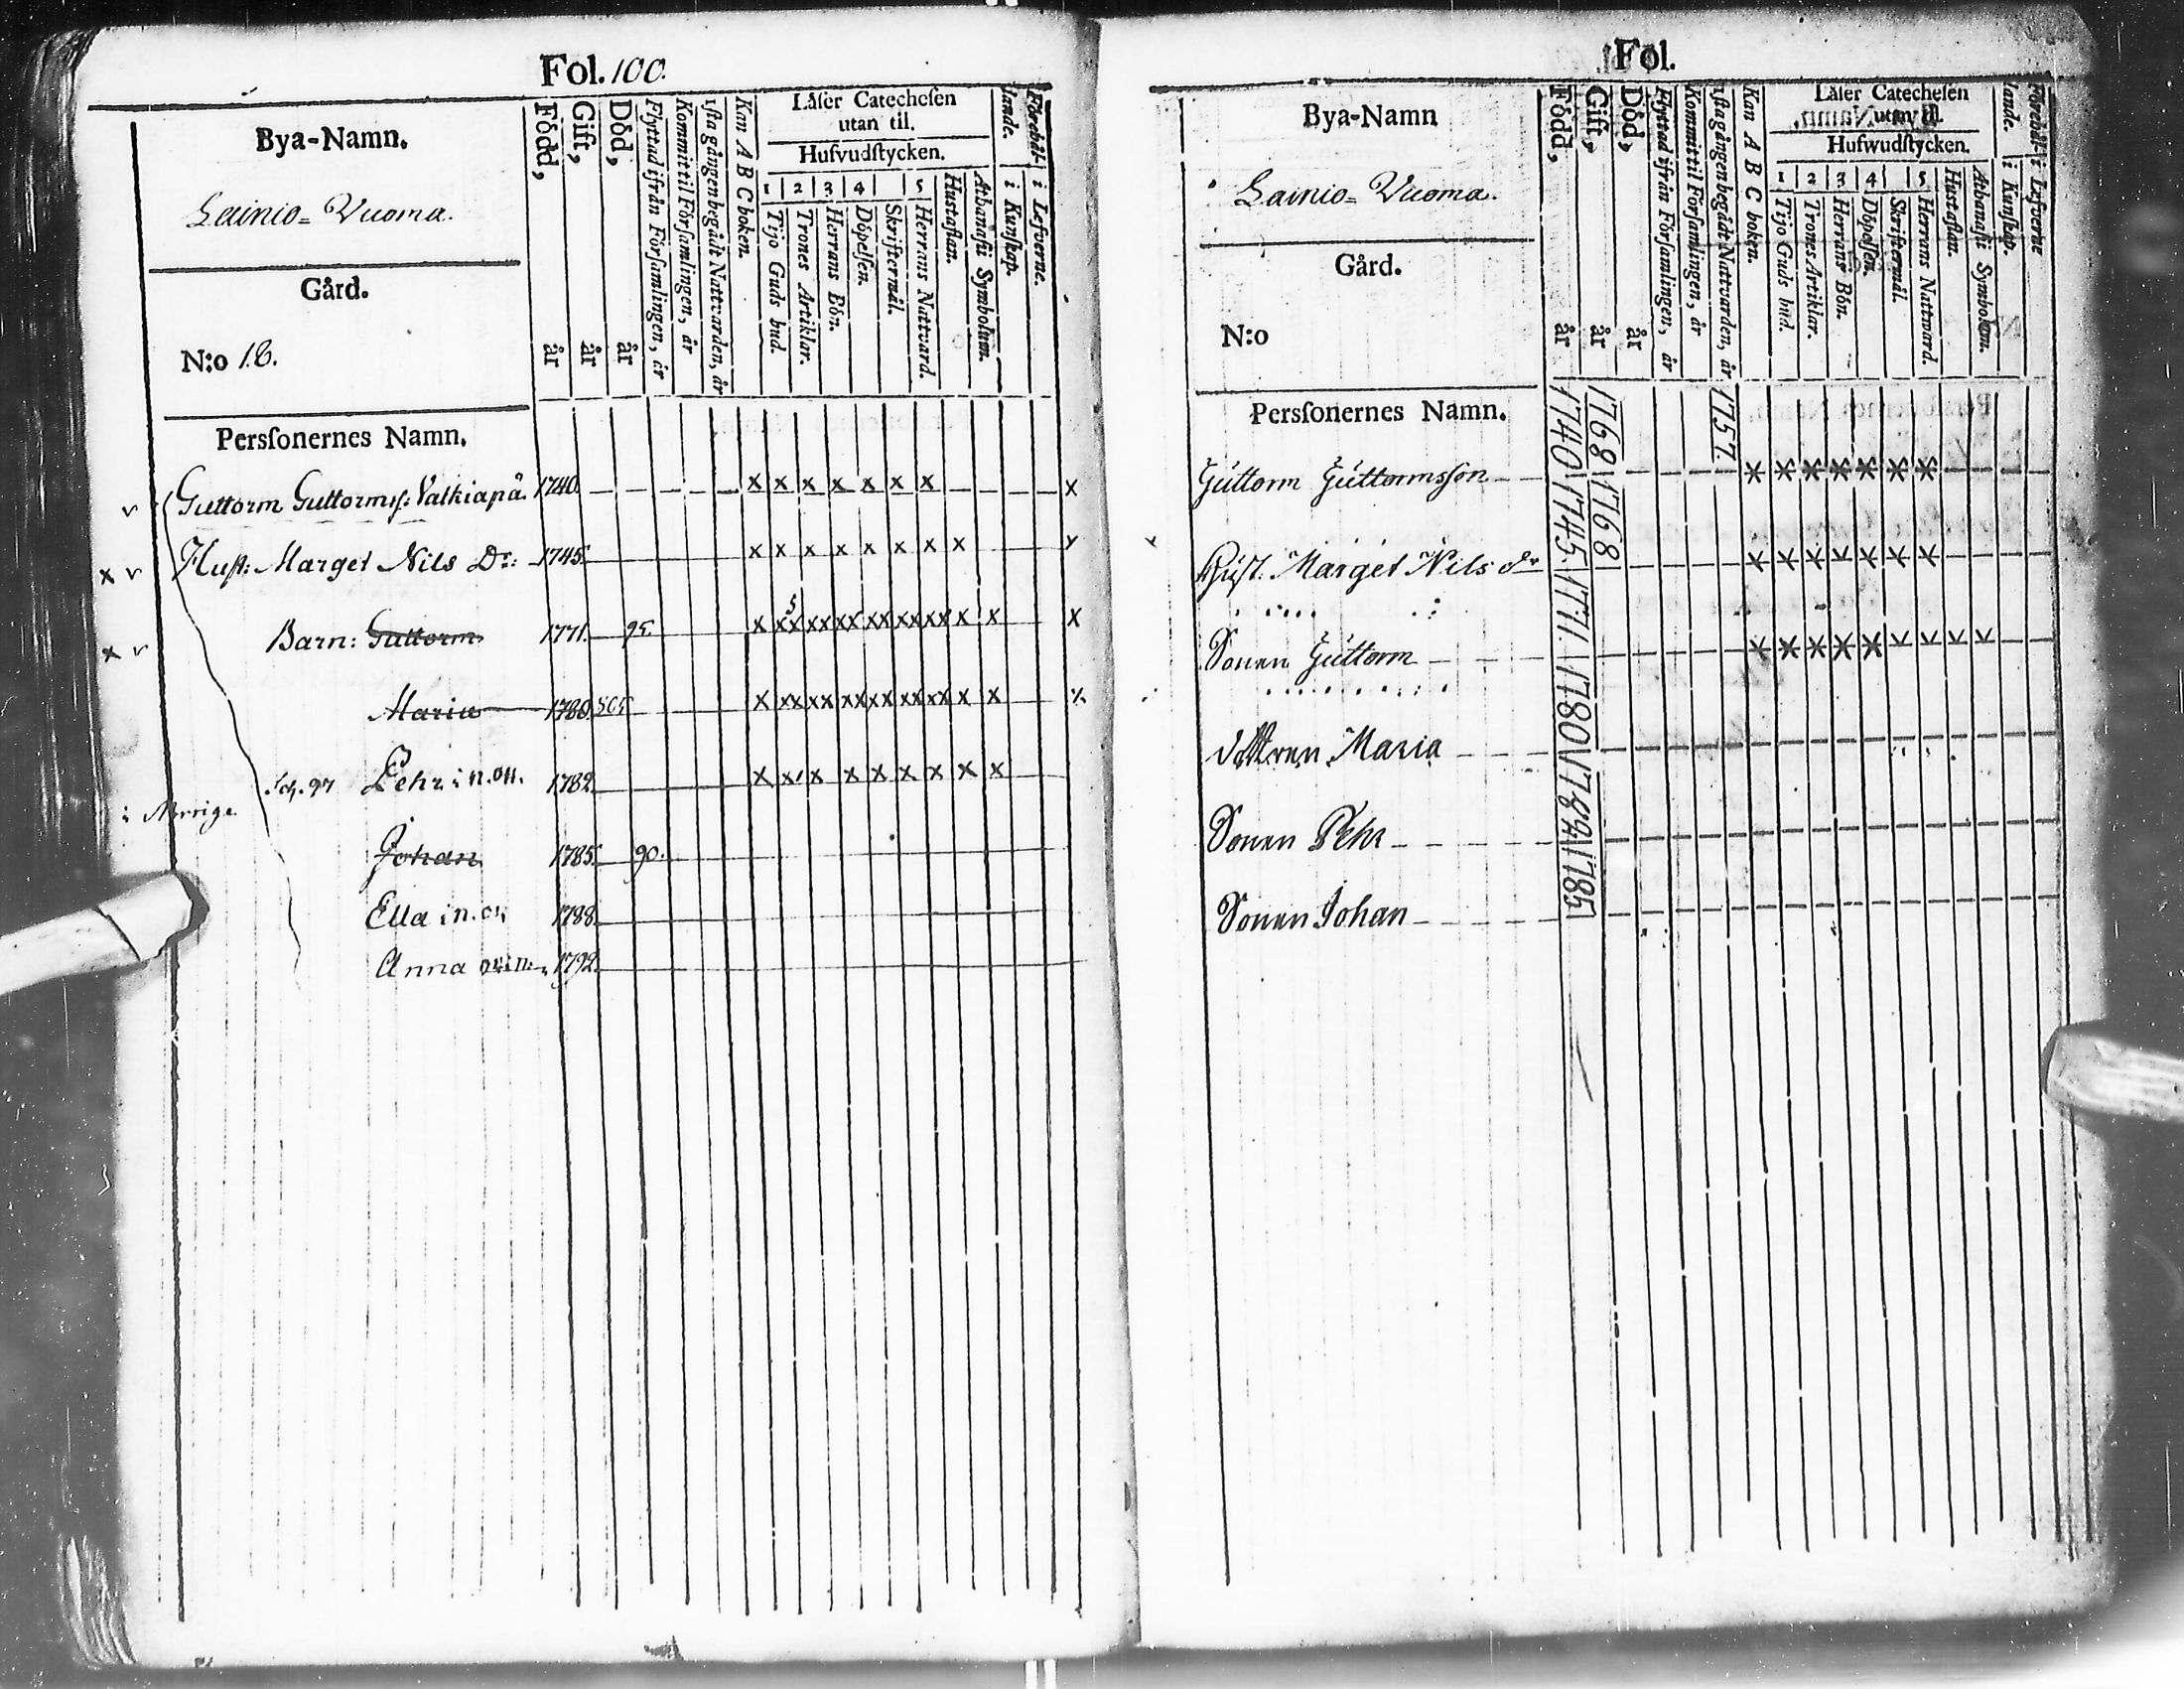 Fol. 100.
Bya-Namn.
Lainio=Vuoma.
Gård.
N:o 18.
Persſonernes Namn.
Född, år
Gift, år
Död, år
Flyttad ifrån Förſamlingen, år
Kommit til Förſamlingen, år
1ſta gången begådt Nattvarden, år
Kan A B C boken.
Läſer Catecheſen
utan til.
Hufvudſtycken.
1 2 3 4 5
Tijo Guds bud.
Trones Artiklar.
Herrans Bön.
Döpelſen.
Skriftermål.
Herrans Nattvard.
Huſtaflan.
Athanaſii Symbolum.
Förehål-
lande.
i Kunſkap.
i Lefverne.
Guttorm Guttormſ: Valkiapä. 1740. x x x x x x x x
Huſt: Marget Nils Dr: 1745. x x x x x x x x
Barn: Guttorm 1771. 95.
Maria 1780.
Pehr 1782.
i Norrige
Johan 1785. 90.
Ella 1788.
Anna 1792.
Fol.
Bya-Namn
Lainio=Vuoma.
Gård.
N:o
Persſonernes Namn.
Född, år
Gift, år
Död, år
Flyttad ifrån Förſamlingen, år
Kommit til Förſamlingen, år
1ſta gången begådt Nattvarden, år
Kan A B C boken.
Läſer Catecheſen
utan til.
Hufwudſtycken.
1 2 3 4 5
Tijo Guds bud.
Trones Artiklar.
Herrans Bön.
Döpelſen.
Skriftermål.
Herrans Nattvard.
Huſtaflan.
Athanaſii Symbolum.
Förehål-
lande.
i Kunſkap.
i Lefverne
Guttorm Guttormsſon 1740 1768 1757. x x x x x x x
Huſt. Marget Nils dr 1745. 1768 x x x x x x x
Sonen Guttorm 1771. x x x x x x x x x
dottren Maria 1780
Sonen Pehr 1782
Sonen Johan 1785